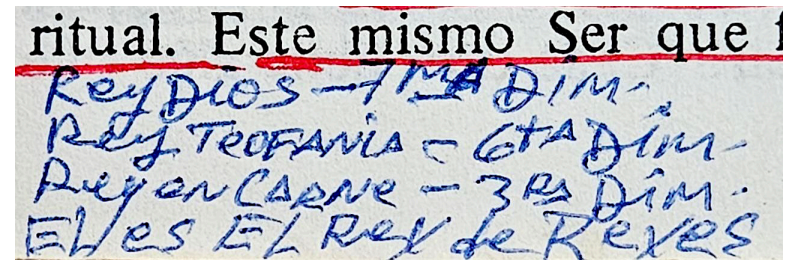 ritual. Este mismo Ser que
Rey Dios - 7MA Dim.
Rey TEOFANIA - 6tA Dim-
Rey en CARNE - 3RA Dim.
EL es EL Rey de Reyes